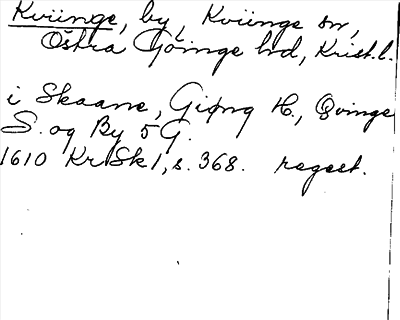 Kviinge, by, Kviinge sn,
Östra Göinge hd, Krist.l.
i Skaane, Giøng H., Qvinge
S. og By 5 G.
1610 KrSk 1, s. 368. regest.